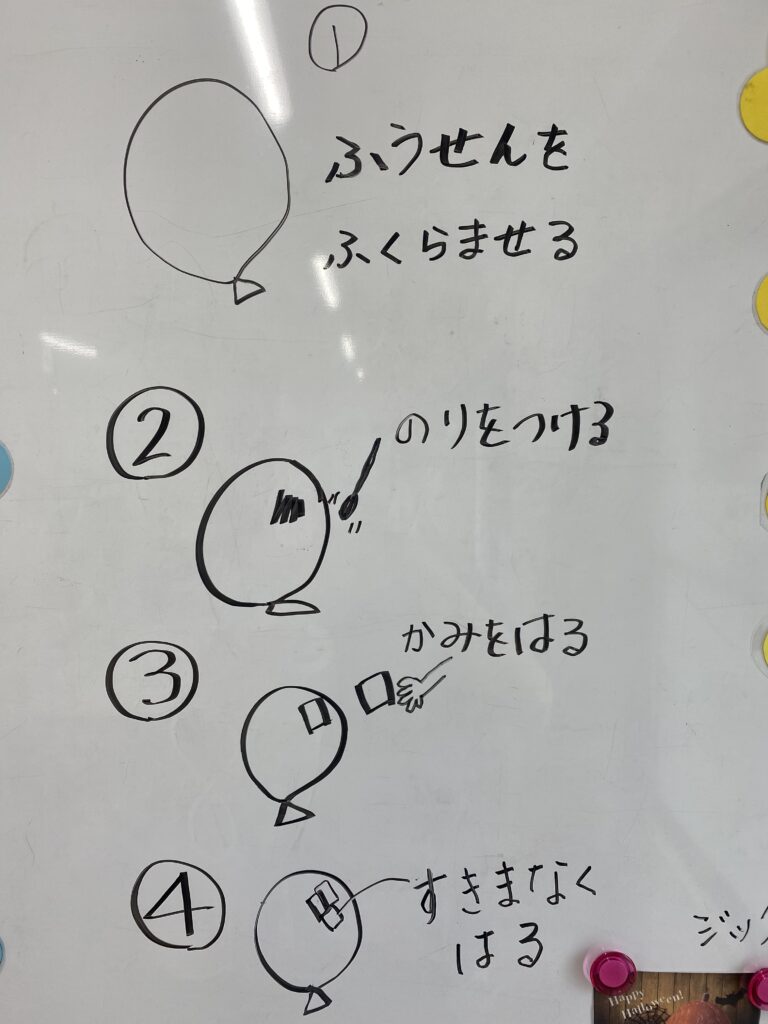 ①
ふうせんを
ふくらませる
②
のりをつける
③
かみをはる
④
すきまなく
はる
Happy
Halloween!